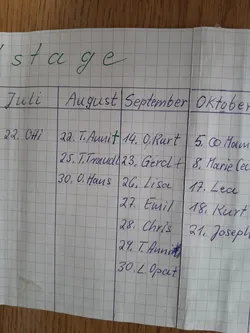 stage
Juli August September Oktober
22. Ohi 22. T. Annit 14. O. Kurt 5. Oo Ham
25. T. 23. Gerd 8. Marie Cea
30. O. Hans 26. Lisa 17. Lea
27. Emil 18. Kurt
28. Chris 21. Joseph
29. T.
30. L. Opat